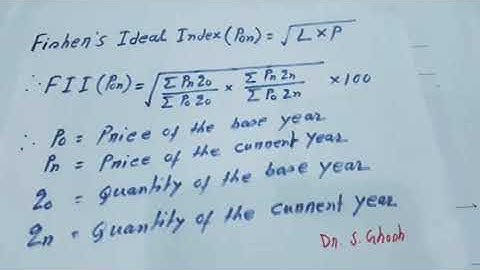 Fisher's Ideal Index (Pon) = √L × P
∴ FII (Pon) = √(Σ Pn qo / Σ Po qo × Σ Pn qn / Σ Po qn) × 100
∴ Po = Price of the base year
Pn = Price of the current year
qo = Quantity of the base year
qn = Quantity of the current year
Dr. S. Ghosh